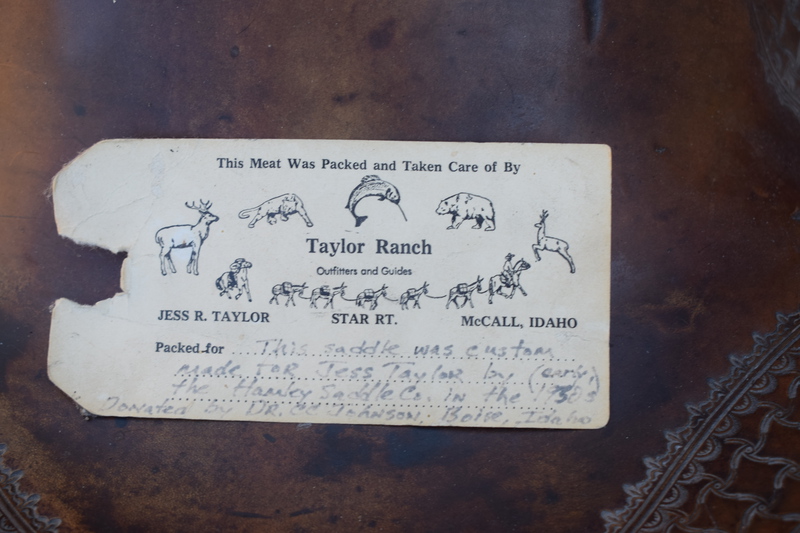 This Meat Was Packed and Taken Care of By
Taylor Ranch
Outfitters and Guides
JESS R. TAYLOR STAR RT. McCALL, IDAHO
Packed for This saddle was custom
made FOR Jess Taylor by (early)
the Hamley Saddle Co. in the 1930s
Donated by DR. JOHNSON, Boise, Idaho